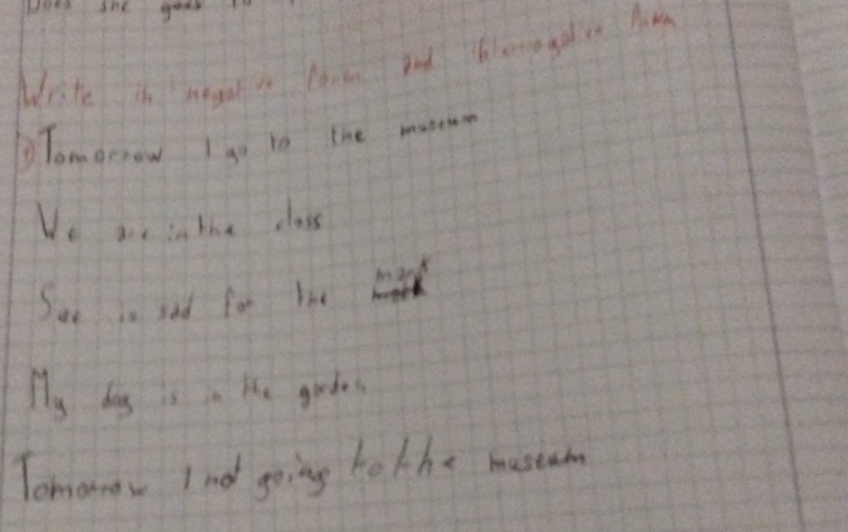 Does she goes to
Write in negative form and interrogative form
1) Tomorrow I go to the museum
We are in the class
Sue is sad for the mark
My dog is in the garden
Tomorrow I not going to the museum